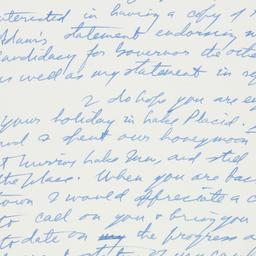 interested in having a copy of
Adam's statement endorsing m
candidacy for Governor the othe
as well as my statement in re
I do hope you are en
your holiday in Lake Placid.
and I spent our honeymoon
at Lake Inn, and still
the place. When you are bac
town I would appreciate a c
to call on you & bring you
to date on my the progress o